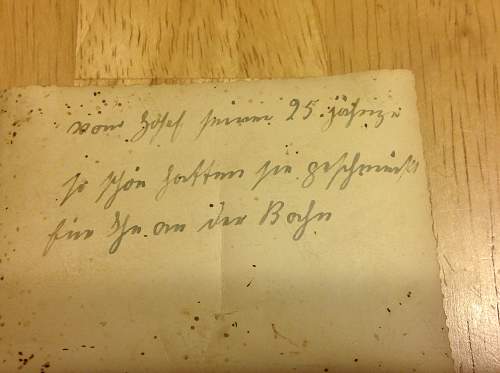 vom Josef seine 25 jährige
so schön hatten sie geschmückt
für Ihn an der Bahn